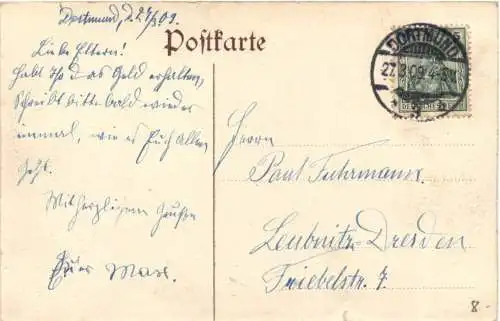 Dortmund, 27/3 09.
Liebe Eltern!
Habt Ihr das Geld erhalten,
Schreibt bitte bald wieder
einmal, wie es Euch Allen
geht.
Mit herzlichem Grußen
Euer Max.
Postkarte
DORTMUND
27.3.09.4-5N
Herrn
Paul Fuhrmann.
Leubnitz-Dresden
Friebelstr. 7.
8-